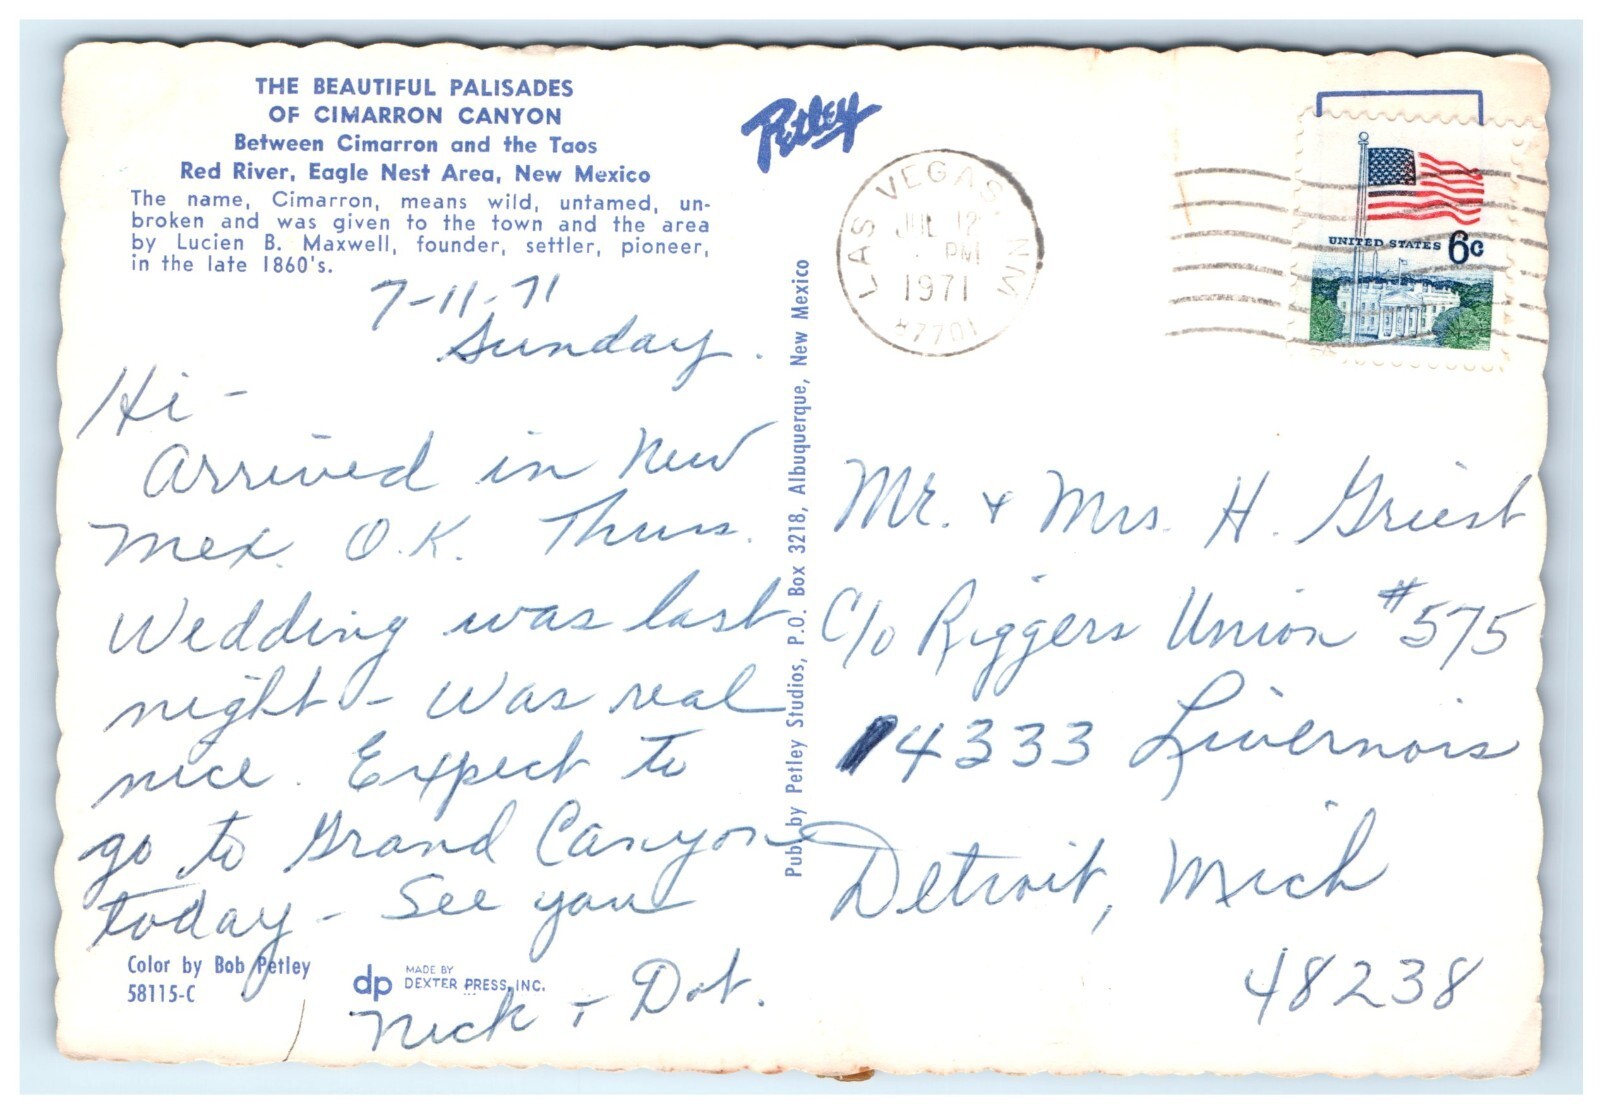 THE BEAUTIFUL PALISADES
OF CIMARRON CANYON
Between Cimarron and the Taos
Red River, Eagle Nest Area, New Mexico
The name, Cimarron, means wild, untamed, un-
broken and was given to the town and the area
by Lucien B. Maxwell, founder, settler, pioneer,
in the late 1860's.
7-11-71
Sunday.
Hi -
Arrived in New
Mex. O.K. Thurs.
Wedding was last
night - was real
nice. Expect to
go to Grand Canyon
today - See you
Nick + Dot.
Color by Bob Petley
58115-C
dp MADE BY
DEXTER PRESS, INC.
Pub. by Petley Studios, P.O. Box 3218, Albuquerque, New Mexico
Petley
LAS VEGAS, NM
JUL 12
PM
1971
87701
UNITED STATES 6c
Mr. + Mrs. H. Griest
C/o Riggers Union #575
14333 Livernois
Detroit, Mich
48238